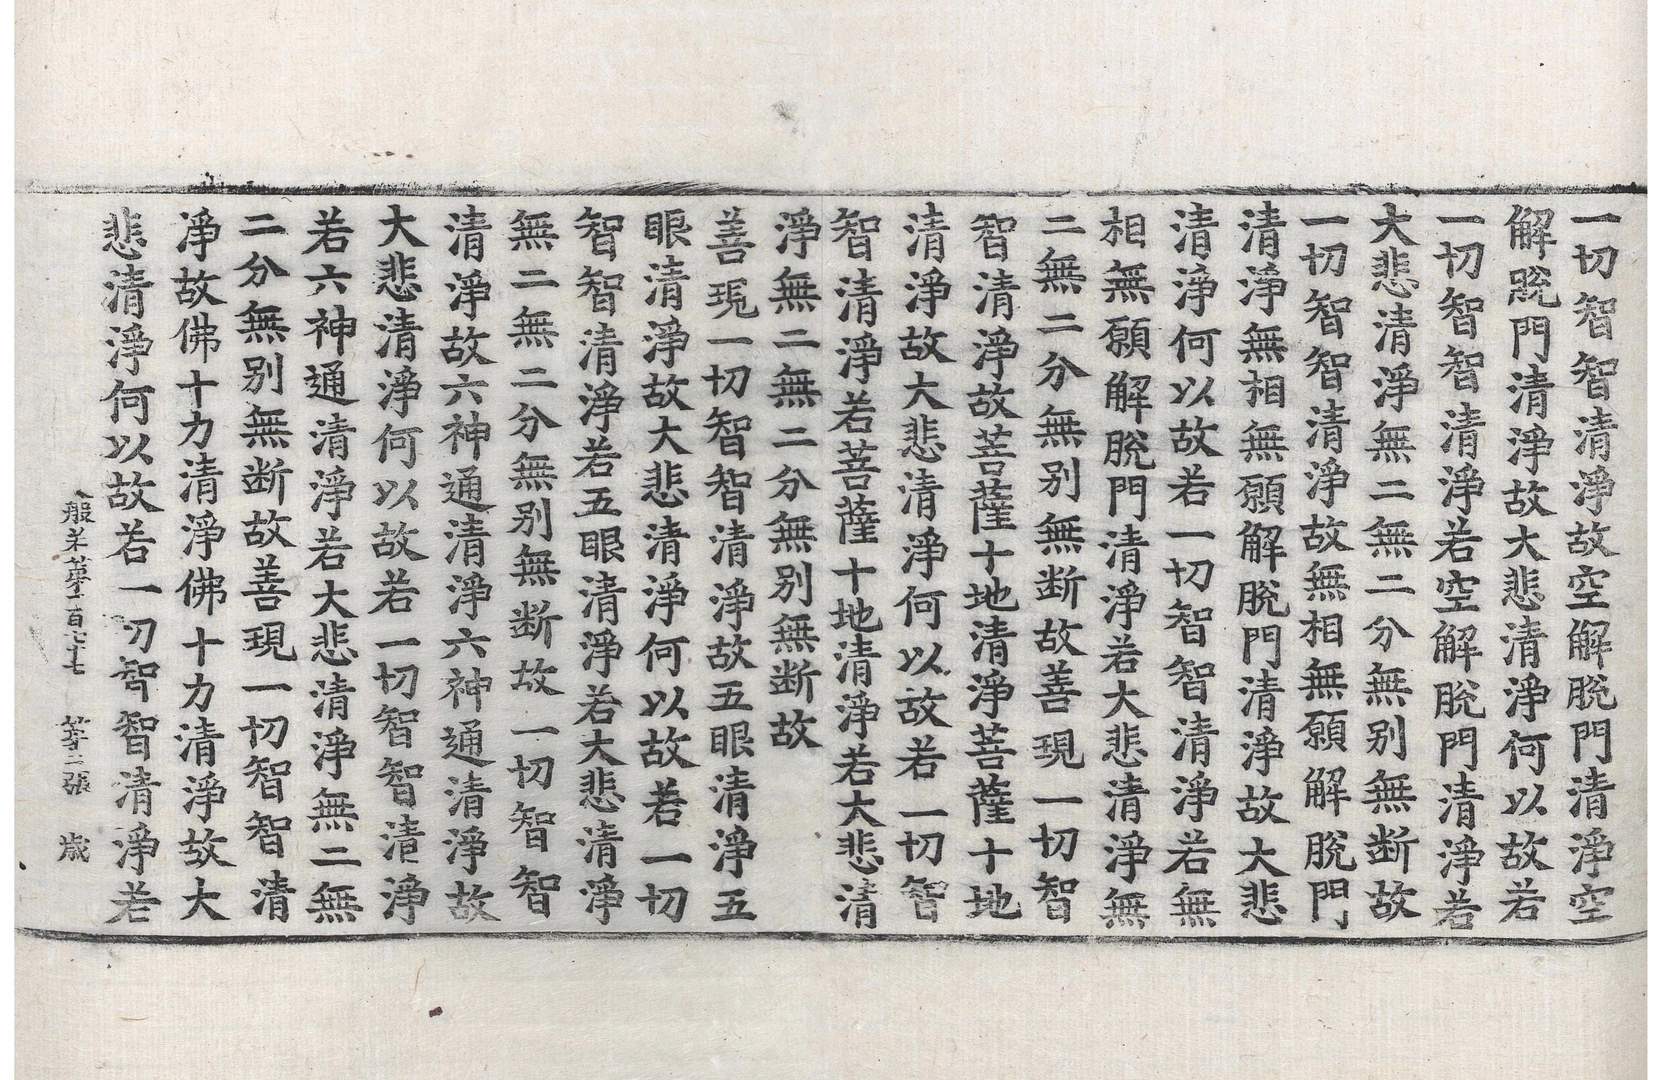 一切智智清淨故空解脫門清淨空
解脫門清淨故大悲清淨何以故若
一切智智清淨若空解脫門清淨若
大悲清淨無二無二分無别無断故
一切智智清淨故無相無願解脫門
清淨無相無願解脫門清淨故大悲
清淨何以故若一切智智清淨若無
相無願解脫門清淨若大悲清淨無
二無二分無别無断故善現一切智
智清淨故菩薩十地清淨菩薩十地
清淨故大悲清淨何以故若一切智
智清淨若菩薩十地清淨若大悲清
淨無二無二分無别無断故
善現一切智智清淨故五眼清淨五
眼清淨故大悲清淨何以故若一切
智智清淨若五眼清淨若大悲清淨
無二無二分無别無断故一切智智
清淨故六神通清淨六神通清淨故
大悲清淨何以故若一切智智清淨
若六神通清淨若大悲清淨無二無
二分無别無断故善現一切智智清
淨故佛十力清淨佛十力清淨故大
悲清淨何以故若一切智智清淨若
般若第二百六十七 第三張 歲